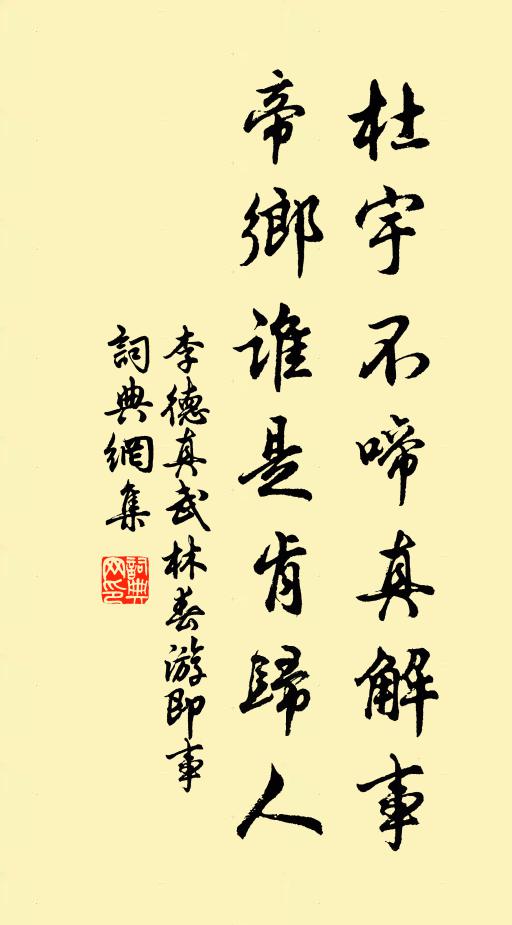 杜宇不啼真解事
帝鄉誰是肯歸人
李德真武林春游即事
詞典網集
詞典網印